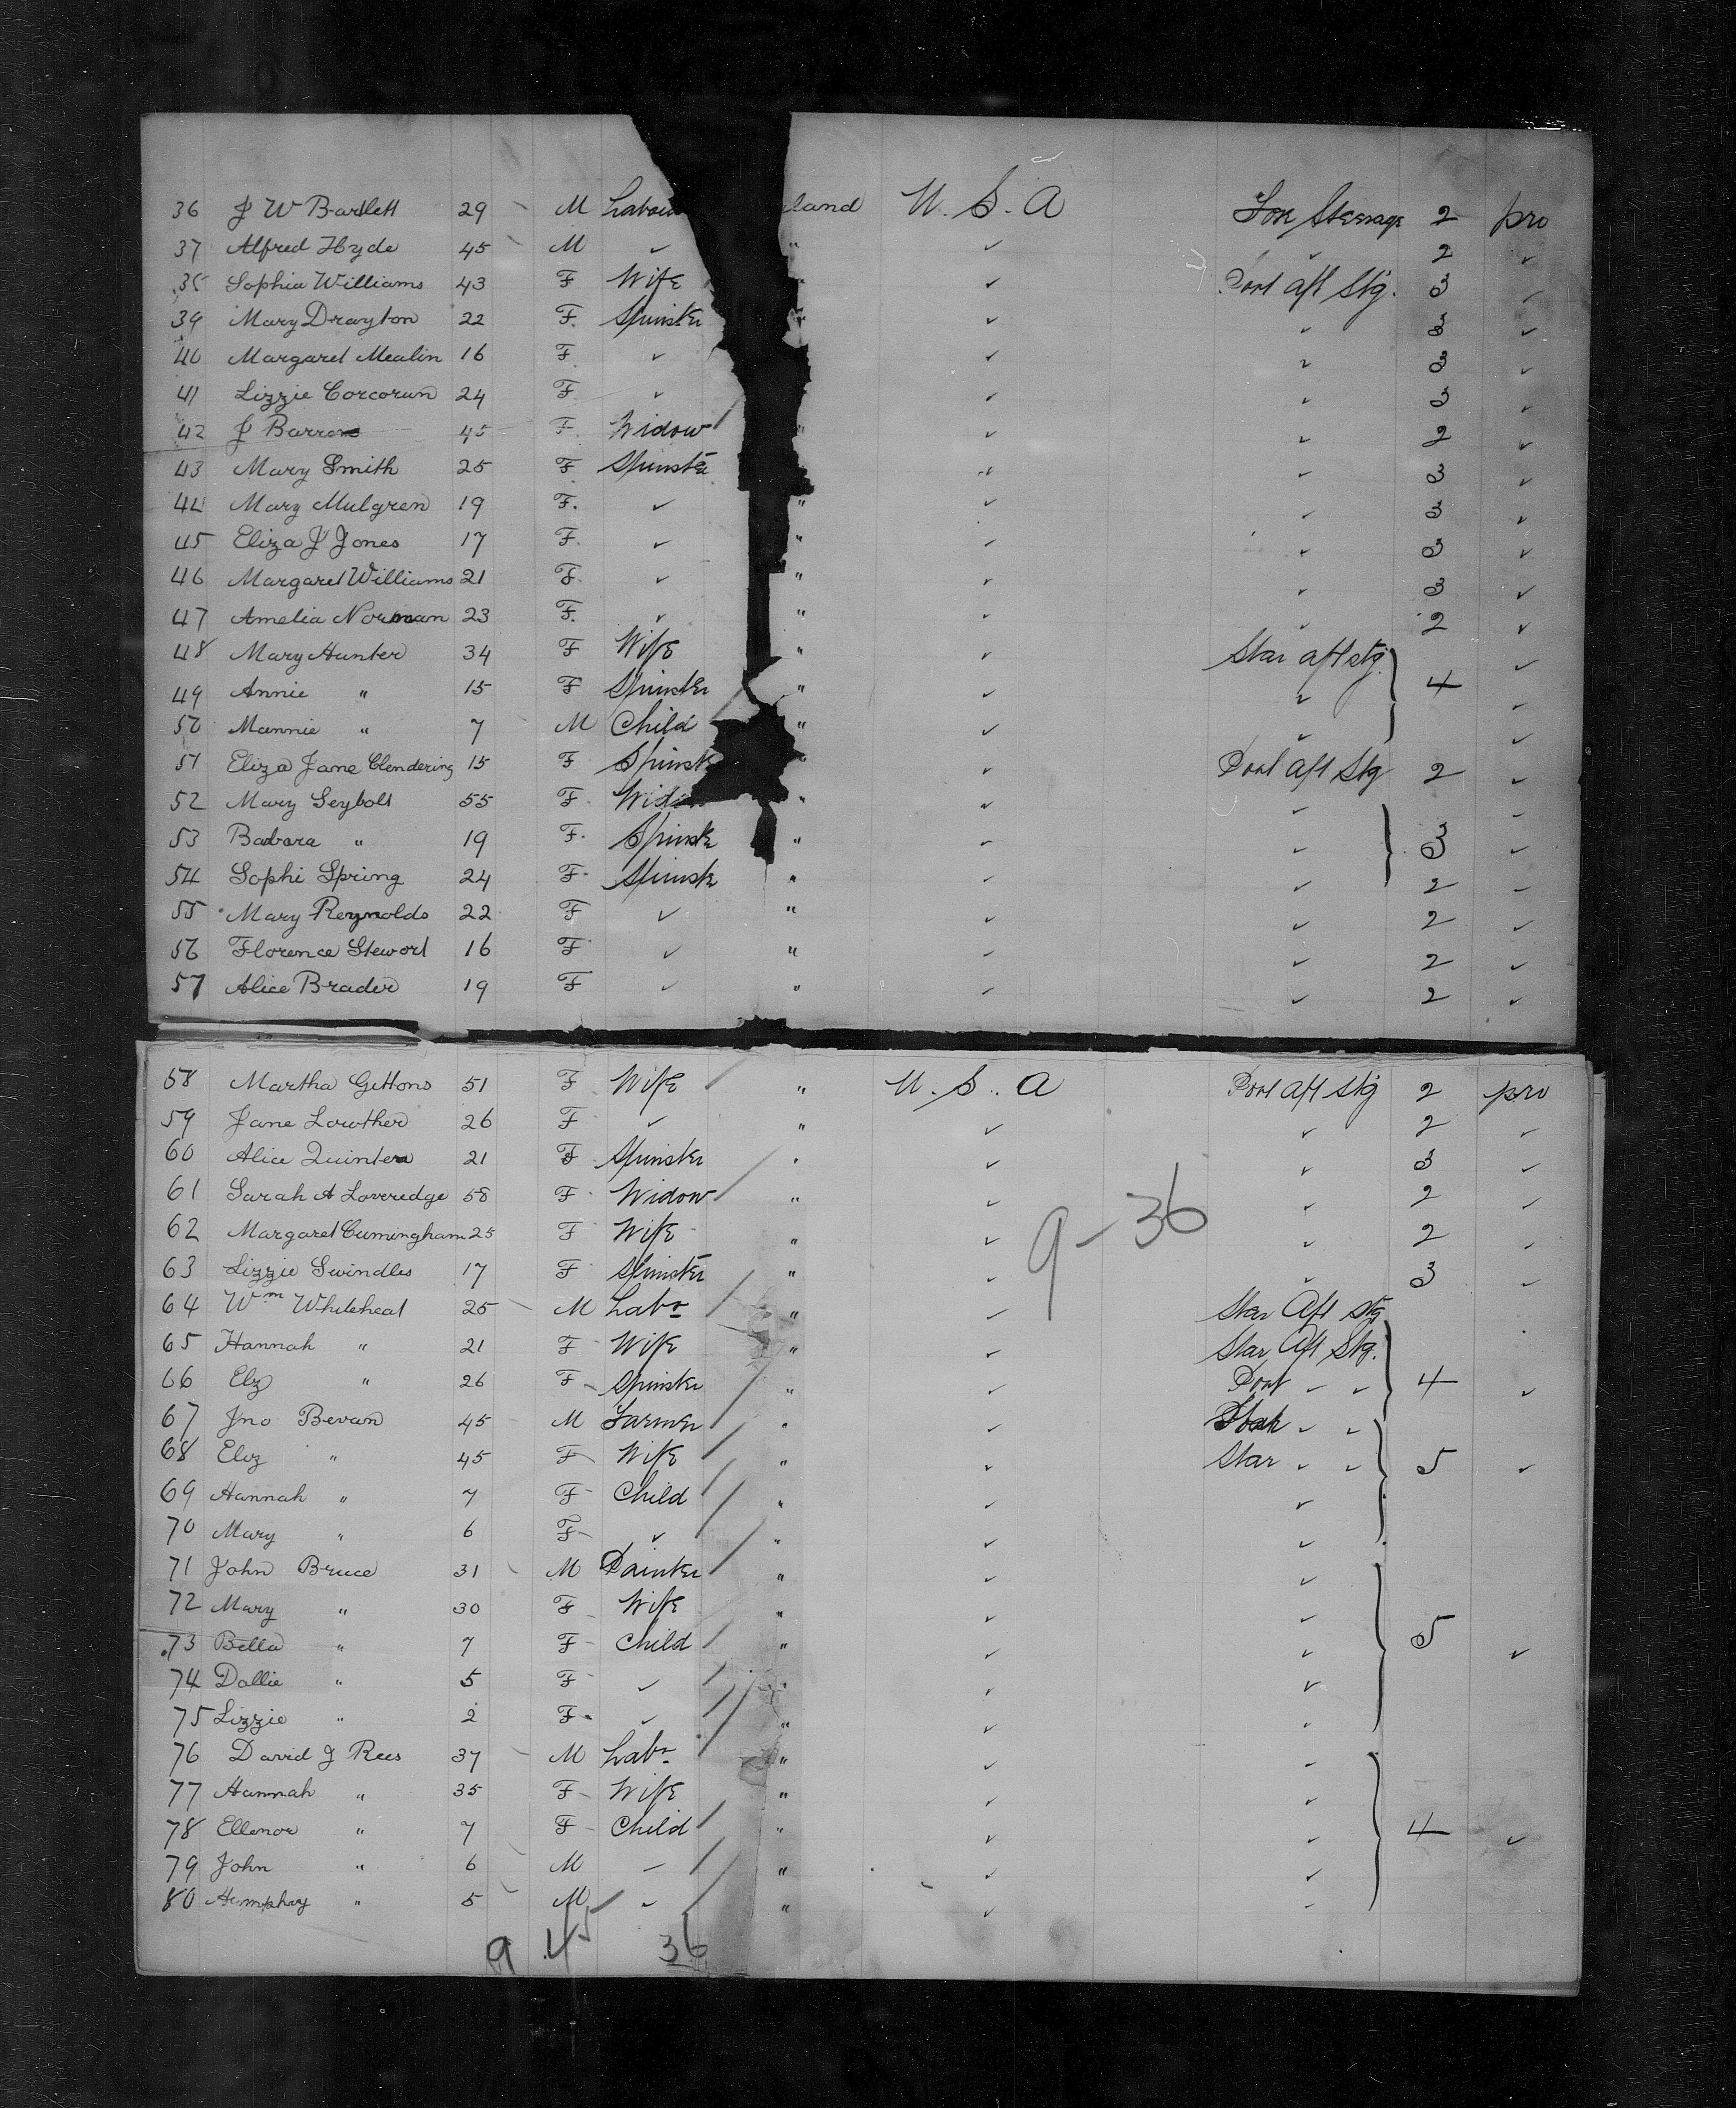 36 J W Bartlett 29 M Labou land U.S.A For Steerage 2 pro
37 Alfred Hyde 45 M ✓ " ✓ ✓ 2 ✓
38 Sophia Williams 43 F Wife " ✓ Port aft Stg. 3 ✓
39 Mary Drayton 22 F. Spinster " ✓ ✓ 3 ✓
40 Margaret Mealin 16 F. ✓ ✓ ✓ 3 ✓
41 Lizzie Corcoran 24 F. ✓ ✓ ✓ 3 ✓
42 J 45 F. Widow " ✓ ✓ 2 ✓
43 Mary Smith 25 F. Spinster ✓ ✓ 3 ✓
44 Mary Mulgren 19 F. ✓ " ✓ ✓ 3 ✓
45 Eliza J Jones 17 F. ✓ " ✓ ✓ 3 ✓
46 Margaret Williams 21 F. ✓ " ✓ ✓ 3 ✓
47 Amelia Norman 23 F. ✓ " ✓ ✓ 2 ✓
48 Mary Hunter 34 F Wife " ✓ Star aft stg. ✓
49 Annie " 15 F Spinster " ✓ ✓ 4 ✓
50 Mannie " 7 M Child " ✓ ✓ ✓
51 Eliza Jane Clendering 15 F Spinst " ✓ Port aft Stg 2 ✓
52 Mary Seybolt 55 F. Wid " ✓ ✓ ✓
53 Babara " 19 F. Spinstr " ✓ ✓ 3 ✓
54 Sophi Spring 24 F. Spinstr " ✓ ✓ 2 ✓
55 Mary Reynolds 22 F ✓ " ✓ ✓ 2 ✓
56 Florence Stewort 16 F ✓ " ✓ ✓ 2 ✓
57 Alice Brader 19 F ✓ " ✓ ✓ 2 ✓
58 Martha Gettons 51 F Wife " U.S.A Port aft stg 2 pro
59 Jane Lowther 26 F ✓ " ✓ ✓ 2 ✓
60 Alice 21 F Spinster " ✓ ✓ 3 ✓
61 Sarah A Loveredge 58 F Widow " ✓ ✓ 2 ✓
62 Margaret Cumingham 25 F Wife " ✓ ✓ 2 ✓
9-36
63 Lizzie Swindles 17 F Spinster " ✓ ✓ 3 ✓
64 Wm Whiteheat 25 M Labr " ✓ Star Aft stg
65 Hannah " 21 F Wife " ✓ Star Aft Stg.
66 Elz " 26 F Spinster " ✓ Port ✓ ✓ 4 ✓
67 Jno Bevan 45 M Farmer " ✓ ✓ ✓
68 Eliz " 45 F Wife " ✓ Star ✓ ✓ 5 ✓
69 Hannah " 7 F Child " ✓ ✓
70 Mary " 6 F ✓ " ✓ ✓
71 John Bruce 31 M Painter " ✓ ✓
72 Mary " 30 F Wife " ✓ ✓
73 Bella " 7 F Child " ✓ ✓ 5 ✓
74 Dollie " 5 F ✓ " ✓ ✓
75 Lizzie " 2 F ✓ " ✓ ✓
76 David J Rees 37 M Labr " ✓ ✓
77 Hannah " 35 F Wife " ✓ ✓
78 Ellenor " 7 F Child " ✓ ✓ 4 ✓
79 John " 6 M ✓ " ✓ ✓
80 Humphry " 5 M ✓ " ✓ ✓
9 45 36